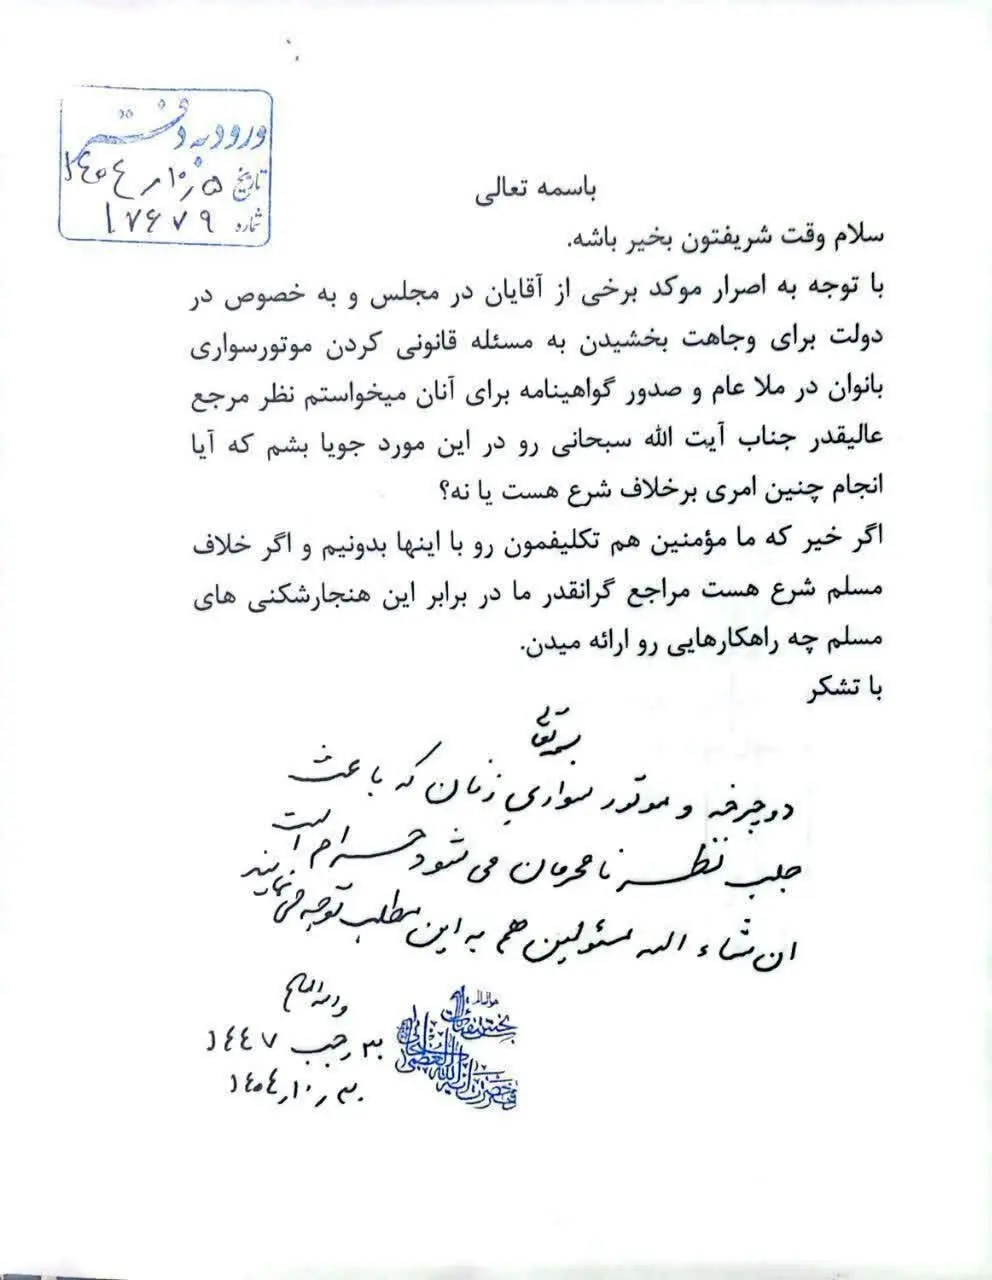 ورود به دفتر
تاریخ ۱۴۰۴ر۱۰ر۵
شماره ۱۷۶۷۹
باسمه تعالی
سلام وقت شریفتون بخیر باشه.
با توجه به اصرار موکد برخی از آقایان در مجلس و به خصوص در
دولت برای وجاهت بخشیدن به مسئله قانونی کردن موتورسواری
بانوان در ملا عام و صدور گواهینامه برای آنان میخواستم نظر مرجع
عالیقدر جناب آیت الله سبحانی رو در این مورد جویا بشم که آیا
انجام چنین امری برخلاف شرع هست یا نه؟
اگر خیر که ما مؤمنین هم تکلیفمون رو با اینها بدونیم و اگر خلاف
مسلم شرع هست مراجع گرانقدر ما در برابر این هنجارشکنی های
مسلم چه راهکارهایی رو ارائه میدن.
با تشکر
بسمه تعالی
دوچرخه و موتور سواری زنان که باعث
جلب نظر نامحرمان می شود حرام است
ان شاء الله مسئولین هم به این مطلب توجه می نمایند
والله العالم
رجب ۱۴۴۷
بخش استفتائات
حضرت آیة الله العظمی سبحانی